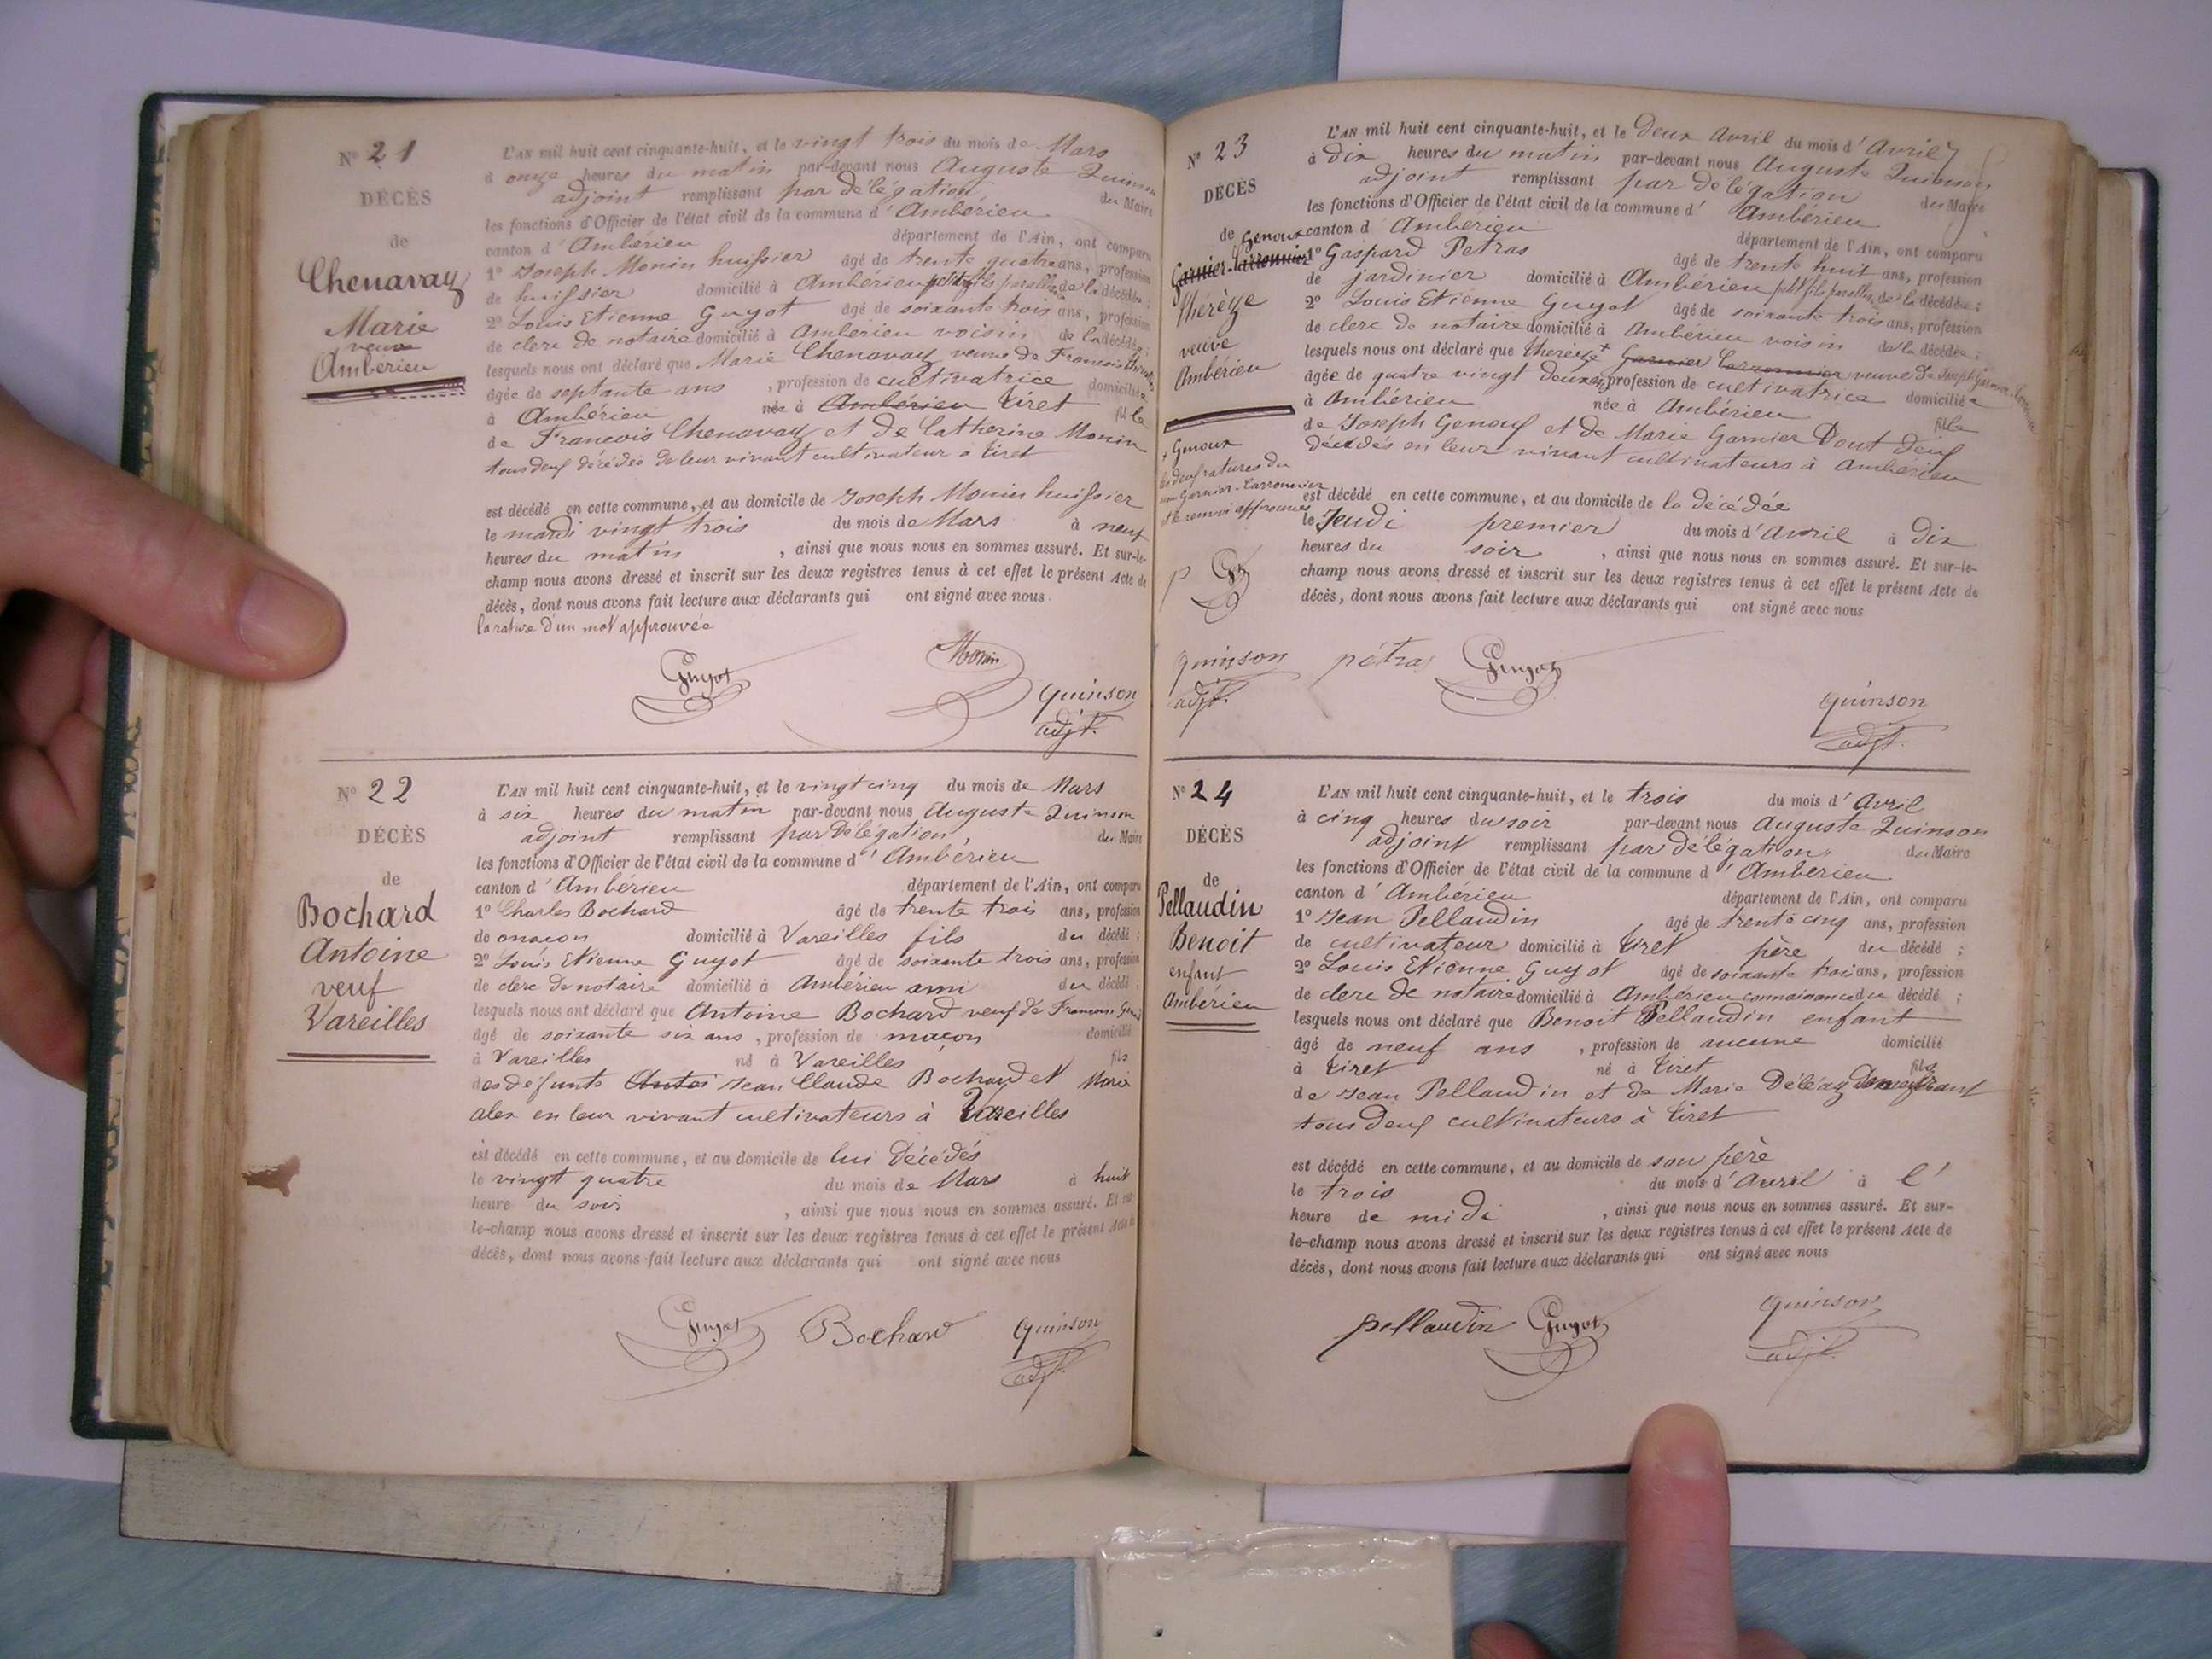 N° 21
DÉCÈS
de
Chenavaz
Marie
veuve
Ambérieu
L'AN mil huit cent cinquante-huit, et le vingt trois du mois de Mars
à onze heures du matin par-devant nous Auguste Quinson
adjoint remplissant par délégation du Maire
les fonctions d'Officier de l'état civil de la commune d'Ambérieu
canton d'Ambérieu département de l'Ain, ont comparu
1° Joseph Monin huissier âgé de trente quatre ans, profession
de huissier domicilié à Ambérieu petit fils par alle de la décédée;
2° Louis Etienne Guyot âgé de soixante trois ans, profession
de clerc de notaire domicilié à Ambérieu voisin de la décédée;
lesquels nous ont déclaré que Marie Chenavaz veuve de François
âgée de septante ans, profession de cultivatrice domiciliée
à Ambérieu née à Ambérieu Tiret fille
de François Chenavaz et de Catherine Monin
tous deux décédés de leur vivant cultivateur à Tiret
est décédé en cette commune, et au domicile de Joseph Monin huissier
le mardi vingt trois du mois de Mars à neuf
heures du matin, ainsi que nous nous en sommes assuré. Et sur-le-
champ nous avons dressé et inscrit sur les deux registres tenus à cet effet le présent Acte de
décès, dont nous avons fait lecture aux déclarants qui ont signé avec nous.
la rature d'un mot approuvée
Guyot Monin
Quinson
adjt.
N° 22
DÉCÈS
de
Bochard
Antoine
veuf
Vareilles
L'AN mil huit cent cinquante-huit, et le vingt cinq du mois de Mars
à six heures du matin par-devant nous Auguste Quinson
adjoint remplissant par Délégation, du Maire
les fonctions d'Officier de l'état civil de la commune d'Ambérieu
canton d'Ambérieu département de l'Ain, ont comparu
1° Charles Bochard âgé de trente trois ans, profession
de maçon domicilié à Vareilles fils du décédé;
2° Louis Etienne Guyot âgé de soixante trois ans, profession
de clerc de notaire domicilié à Ambérieu ami du décédé;
lesquels nous ont déclaré que Antoine Bochard veuf de
âgé de soixante six ans, profession de maçon domicilié
à Vareilles né à Vareilles fils
des defunts Antoi Jean Claude Bochard et Marie
alex en leur vivant cultivateurs à Vareilles
est décédé en cette commune, et au domicile de lui Décédés
le vingt quatre du mois de Mars à huit
heure du soir, ainsi que nous nous en sommes assuré. Et sur-
le-champ nous avons dressé et inscrit sur les deux registres tenus à cet effet le présent Acte de
décès, dont nous avons fait lecture aux déclarants qui ont signé avec nous
Guyot Bochard Quinson
adjt.
N° 23
DÉCÈS
de Genoux
Garnier-Larronnier
thérèze
veuve
Ambérieu
+ Genoux
les deux ratures du
nom Garnier-Larronnier
et le renvoi approuvés
P G
Quinson
adjt.
L'AN mil huit cent cinquante-huit, et le deux Avril du mois d'Avril
à dix heures du matin par-devant nous Auguste Quinson
adjoint remplissant par délégation du Maire
les fonctions d'Officier de l'état civil de la commune d'Ambérieu
canton d'Ambérieu département de l'Ain, ont comparu
1° Gaspard Petras âgé de trente huit ans, profession
de jardinier domicilié à Ambérieu petit fils par alle de la décédée;
2° Louis Etienne Guyot âgé de soixante trois ans, profession
de clerc de notaire domicilié à Ambérieu voisin de la décédée;
lesquels nous ont déclaré que thérèze + Garnier Larronnier veuve de Joseph
âgée de quatre vingt deux ans, profession de cultivatrice domiciliée
à Ambérieu née à Ambérieu fille
de Joseph Genoux et de Marie Garnier Tout deux
décédés en leur vivant cultivateurs à Ambérieu
est décédé en cette commune, et au domicile de la décédée
le Jeudi premier du mois d'Avril à dix
heures du soir, ainsi que nous nous en sommes assuré. Et sur-le-
champ nous avons dressé et inscrit sur les deux registres tenus à cet effet le présent Acte de
décès, dont nous avons fait lecture aux déclarants qui ont signé avec nous
pétras Guyot
Quinson
adjt.
N° 24
DÉCÈS
de
Pellaudin
Benoit
enfant
Ambérieu
L'AN mil huit cent cinquante-huit, et le trois du mois d'Avril
à cinq heures du soir par-devant nous Auguste Quinson
adjoint remplissant par délégation, du Maire
les fonctions d'Officier de l'état civil de la commune d'Ambérieu
canton d'Ambérieu département de l'Ain, ont comparu
1° Jean Pellaudin âgé de trente cinq ans, profession
de cultivateur domicilié à Tiret père du décédé;
2° Louis Etienne Guyot âgé de soixante trois ans, profession
de clerc de notaire domicilié à Ambérieu connaissance du décédé;
lesquels nous ont déclaré que Benoit Pellaudin enfant
âgé de neuf ans, profession de aucune domicilié
à Tiret né à Tiret fils
de Jean Pellaudin et de Marie Déléaz demeurant
tous deux cultivateurs à Tiret
est décédé en cette commune, et au domicile de son père
le trois du mois d'Avril à l'
heure de midi, ainsi que nous nous en sommes assuré. Et sur-
le-champ nous avons dressé et inscrit sur les deux registres tenus à cet effet le présent Acte de
décès, dont nous avons fait lecture aux déclarants qui ont signé avec nous
pellaudin Guyot Quinson
adjt.